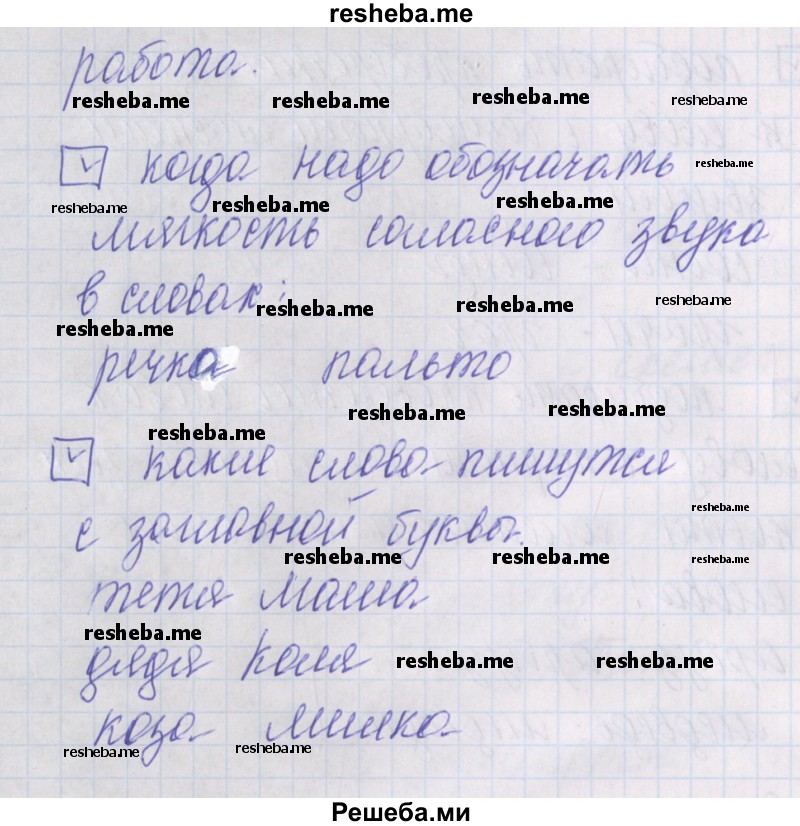 resheba.me
работа.
resheba.me resheba.me resheba.me resheba.me
когда надо обозначать resheba.me
resheba.me resheba.me resheba.me
мягкость согласного звука
в словах: resheba.me resheba.me resheba.me
resheba.me
речка пальто
resheba.me resheba.me
resheba.me
какие слова пишутся
resheba.me
с заглавной буквы.
resheba.me resheba.me resheba.me
тетя Маша
resheba.me
дядя Коля resheba.me resheba.me
коза Милка
resheba.me resheba.me
Решеба.ми